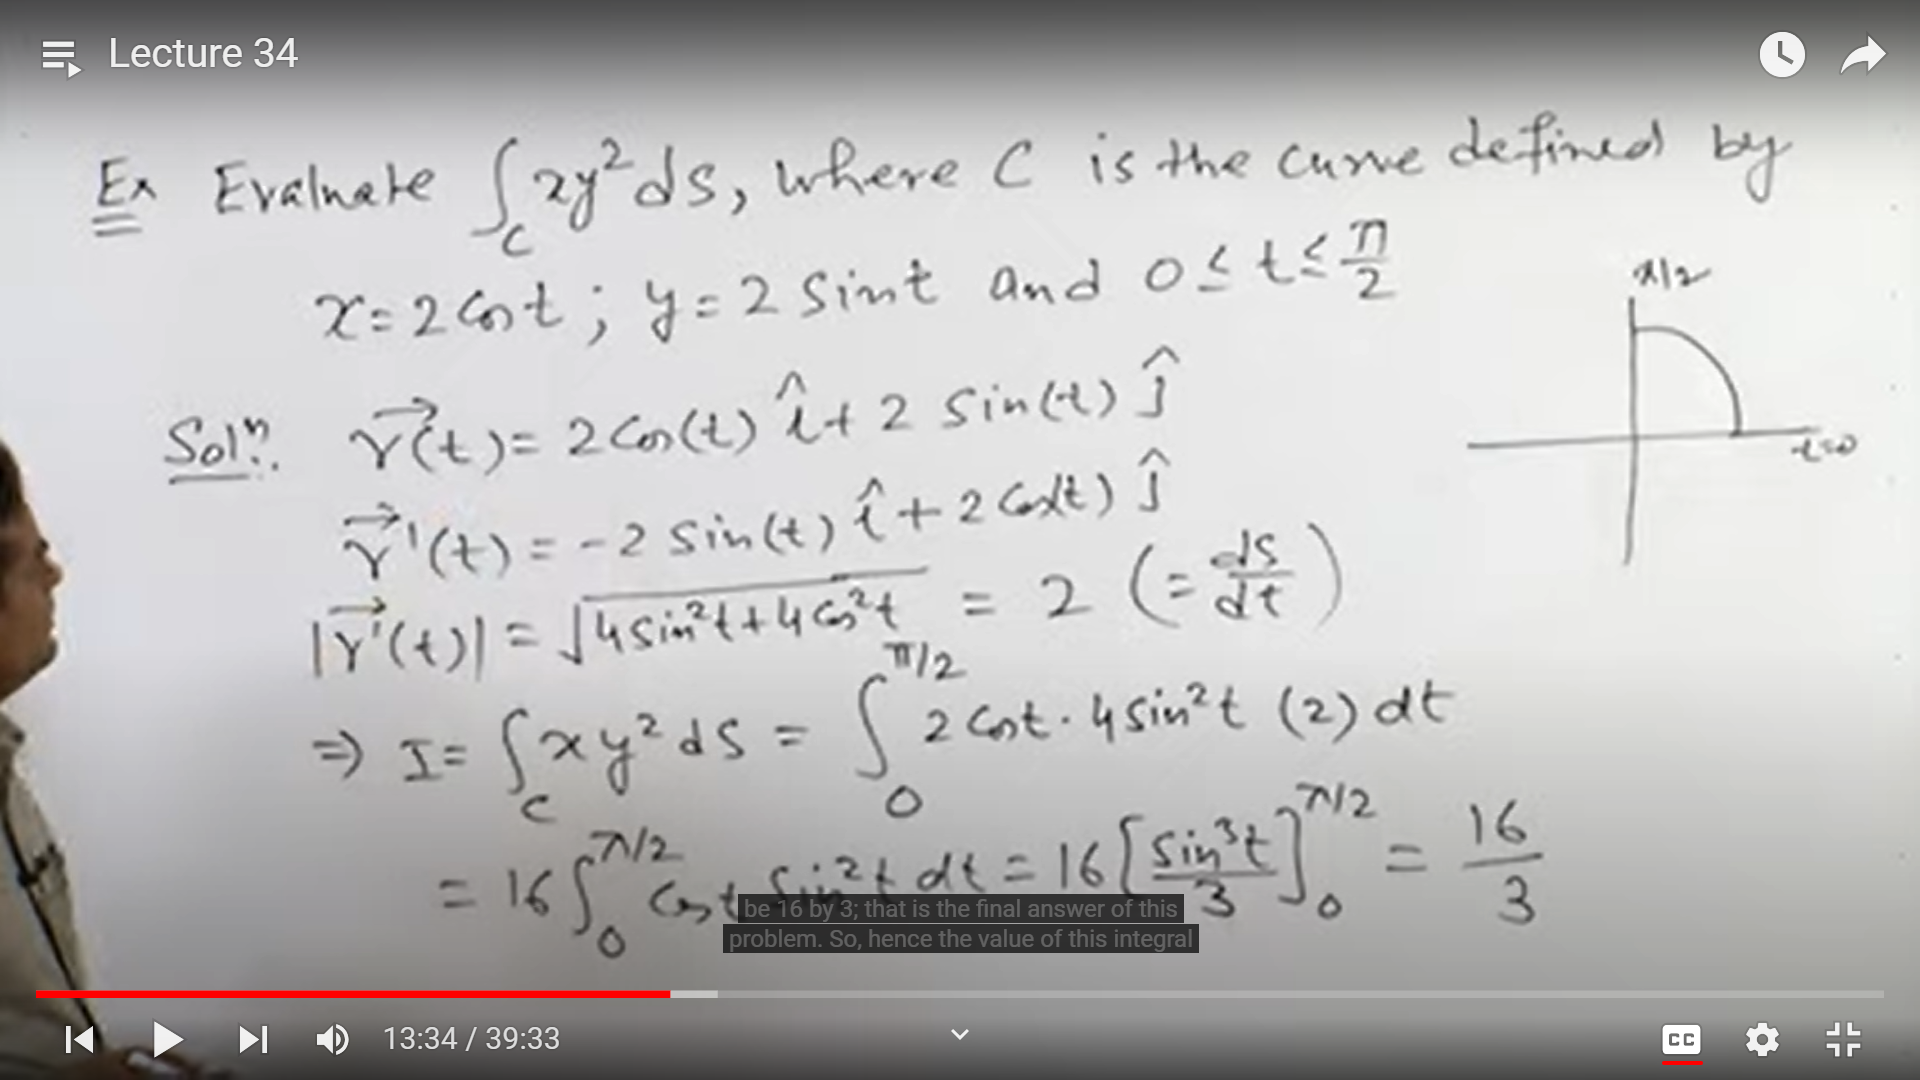 Lecture 34
Ex Evaluate ∫_C xy² ds, where C is the curve defined by
x = 2 Cos t ; y = 2 Sin t and 0 ≤ t ≤ π/2
π/2
t=0
Solⁿ. r⃗(t) = 2 Cos(t) î + 2 Sin(t) ĵ
r⃗'(t) = -2 Sin(t) î + 2 Cos(t) ĵ
|r⃗'(t)| = √(4 Sin²t + 4 Cos²t) = 2 (= ds/dt)
⇒ I = ∫_C xy² ds = ∫_0^{π/2} 2 Cos t · 4 Sin²t (2) dt
= 16 ∫_0^{π/2} Cos t Sin²t dt = 16 [Sin³t/3]_0^{π/2} = 16/3
be 16 by 3; that is the final answer of this
problem. So, hence the value of this integral
13:34 / 39:33
CC